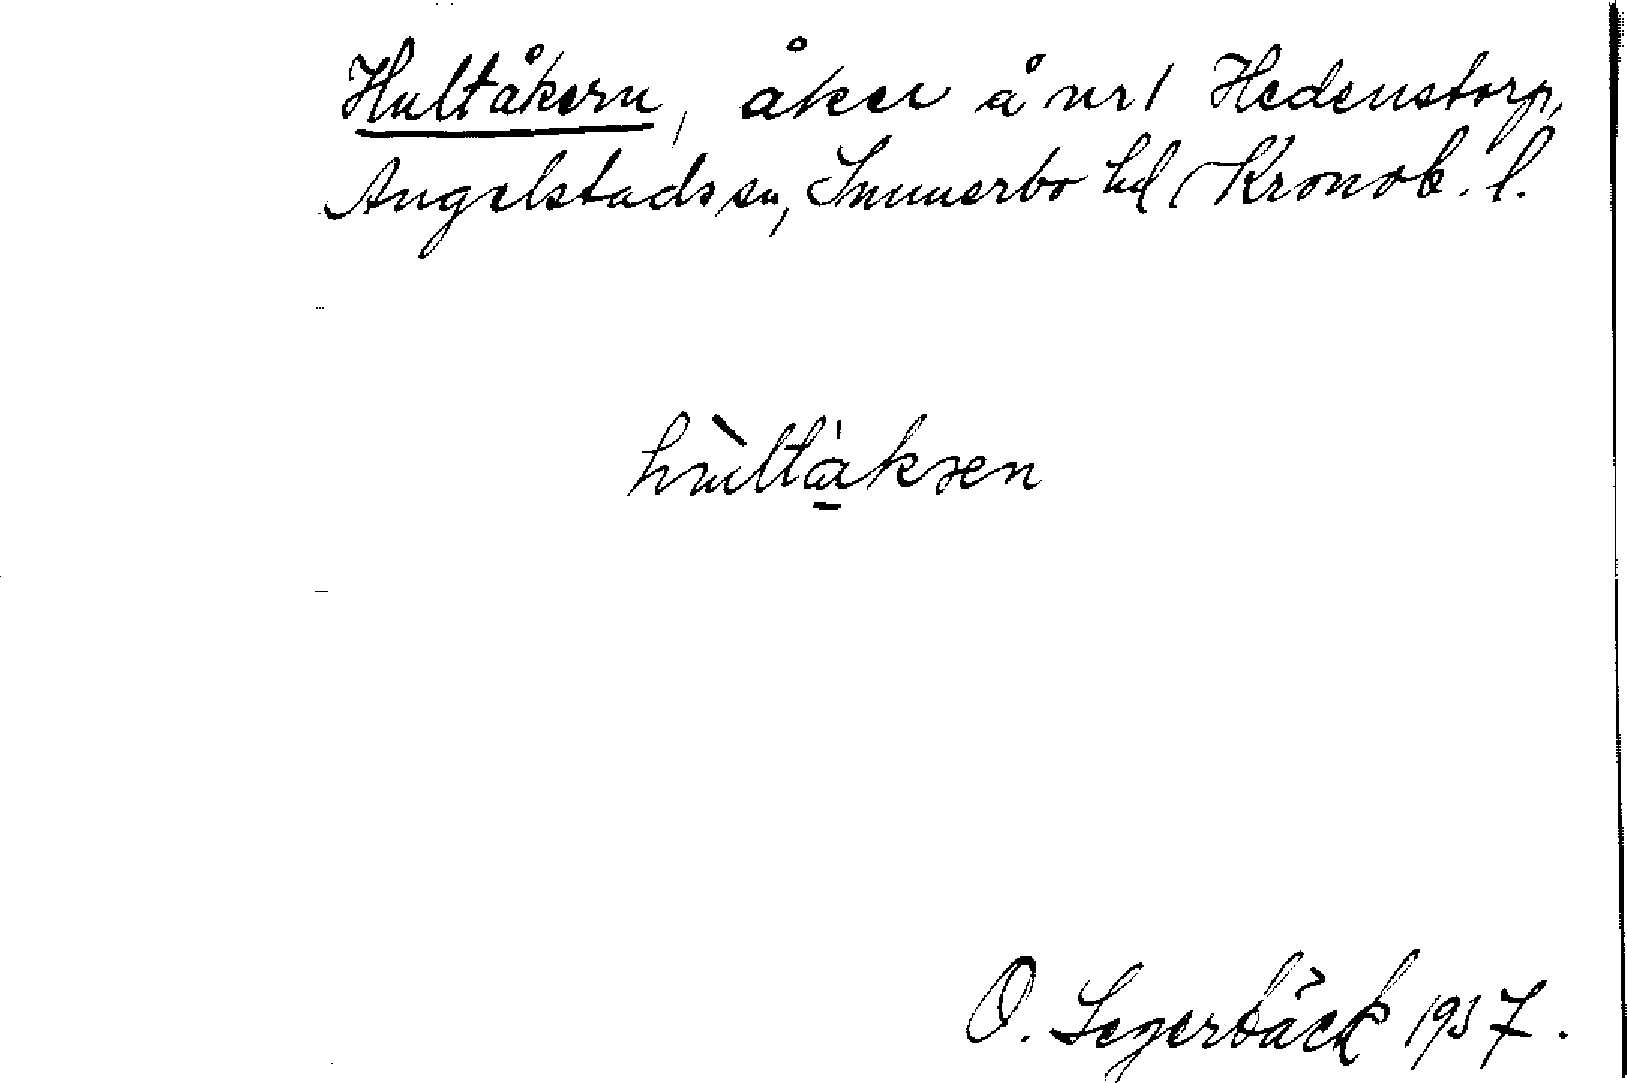 Hultåkern, åker å nr 1 Hedenstorp,
Angelstads sn, Sunnerbo hd, Kronob. l.
hùltàksen
O. Segerbäck 1937.